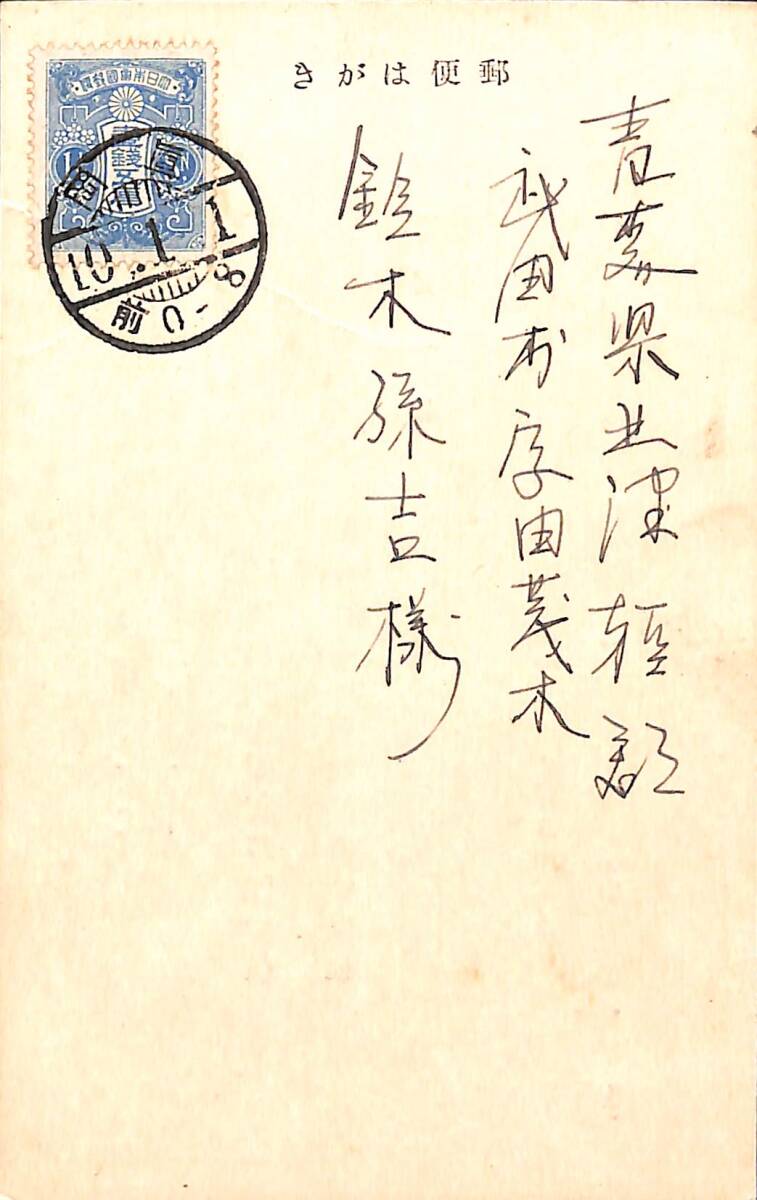 郵便はがき
青森県北津軽郡
武田村字田茂木
鈴木孫吉様
大日本帝國郵便
壹錢五
10.1.1
前0-8